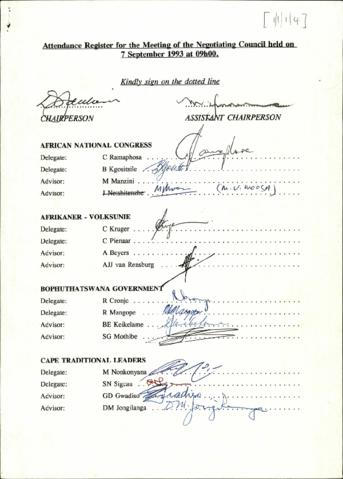 Attendance Register for the Meeting of the Negotiating Council held on
7 September 1993 at 09h00.
Kindly sign on the dotted line
CHAIRPERSON ASSISTANT CHAIRPERSON
AFRICAN NATIONAL CONGRESS
Delegate: C Ramaphosa
Delegate: B Kgositsile
Advisor: M Manzini
Advisor: J Neishitenzhe (M.V. MOOSA)
AFRIKANER - VOLKSUNIE
Delegate: C Kruger
Delegate: C Pienaar
Advisor: A Beyers
Advisor: AJJ van Rensburg
BOPHUTHATSWANA GOVERNMENT
Delegate: R Cronje
Delegate: R Mangope
Advisor: BE Keikelame
Advisor: SG Mothibe
CAPE TRADITIONAL LEADERS
Delegate: M Nonkonyana
Delegate: SN Sigcau
Advisor: GD Gwadiso
Advisor: DM Jongilanga